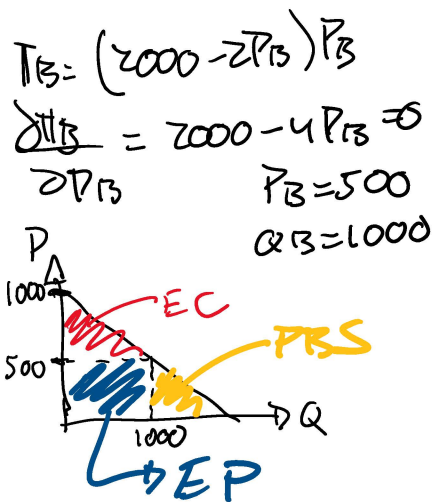 πB = (2000 - 2PB) PB
∂πB/∂PB = 2000 - 4PB = 0
PB = 500
QB = 1000
P
1000
EC
PBS
500
1000
Q
EP